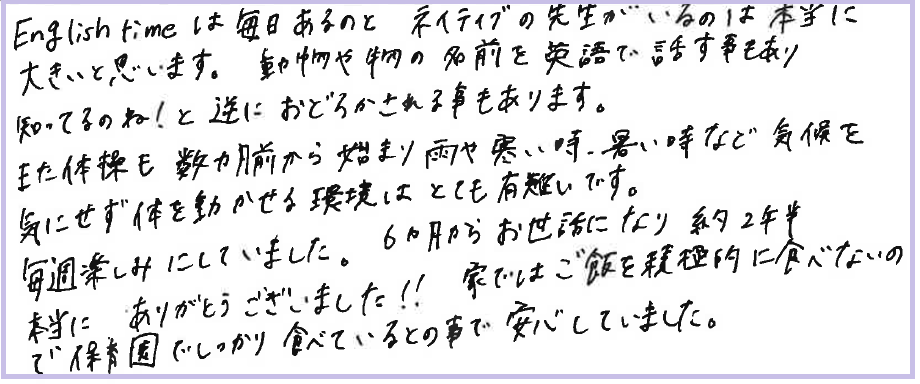 English timeは毎日あるのと ネイティブの先生がいるのは本当に
大きいと思います。 動物や物の名前を英語で話す事もあり
知ってるのね！と逆におどろかされる事もあります。
また体操も数カ月前から始まり雨や寒い時、暑い時など気候を
気にせず体を動かせる環境はとても有難いです。
毎週楽しみにしていました。 6カ月からお世話になり約2年半
本当に ありがとうございました!! 家ではご飯を積極的に食べないの
で保育園でしっかり食べているとの事で安心していました。